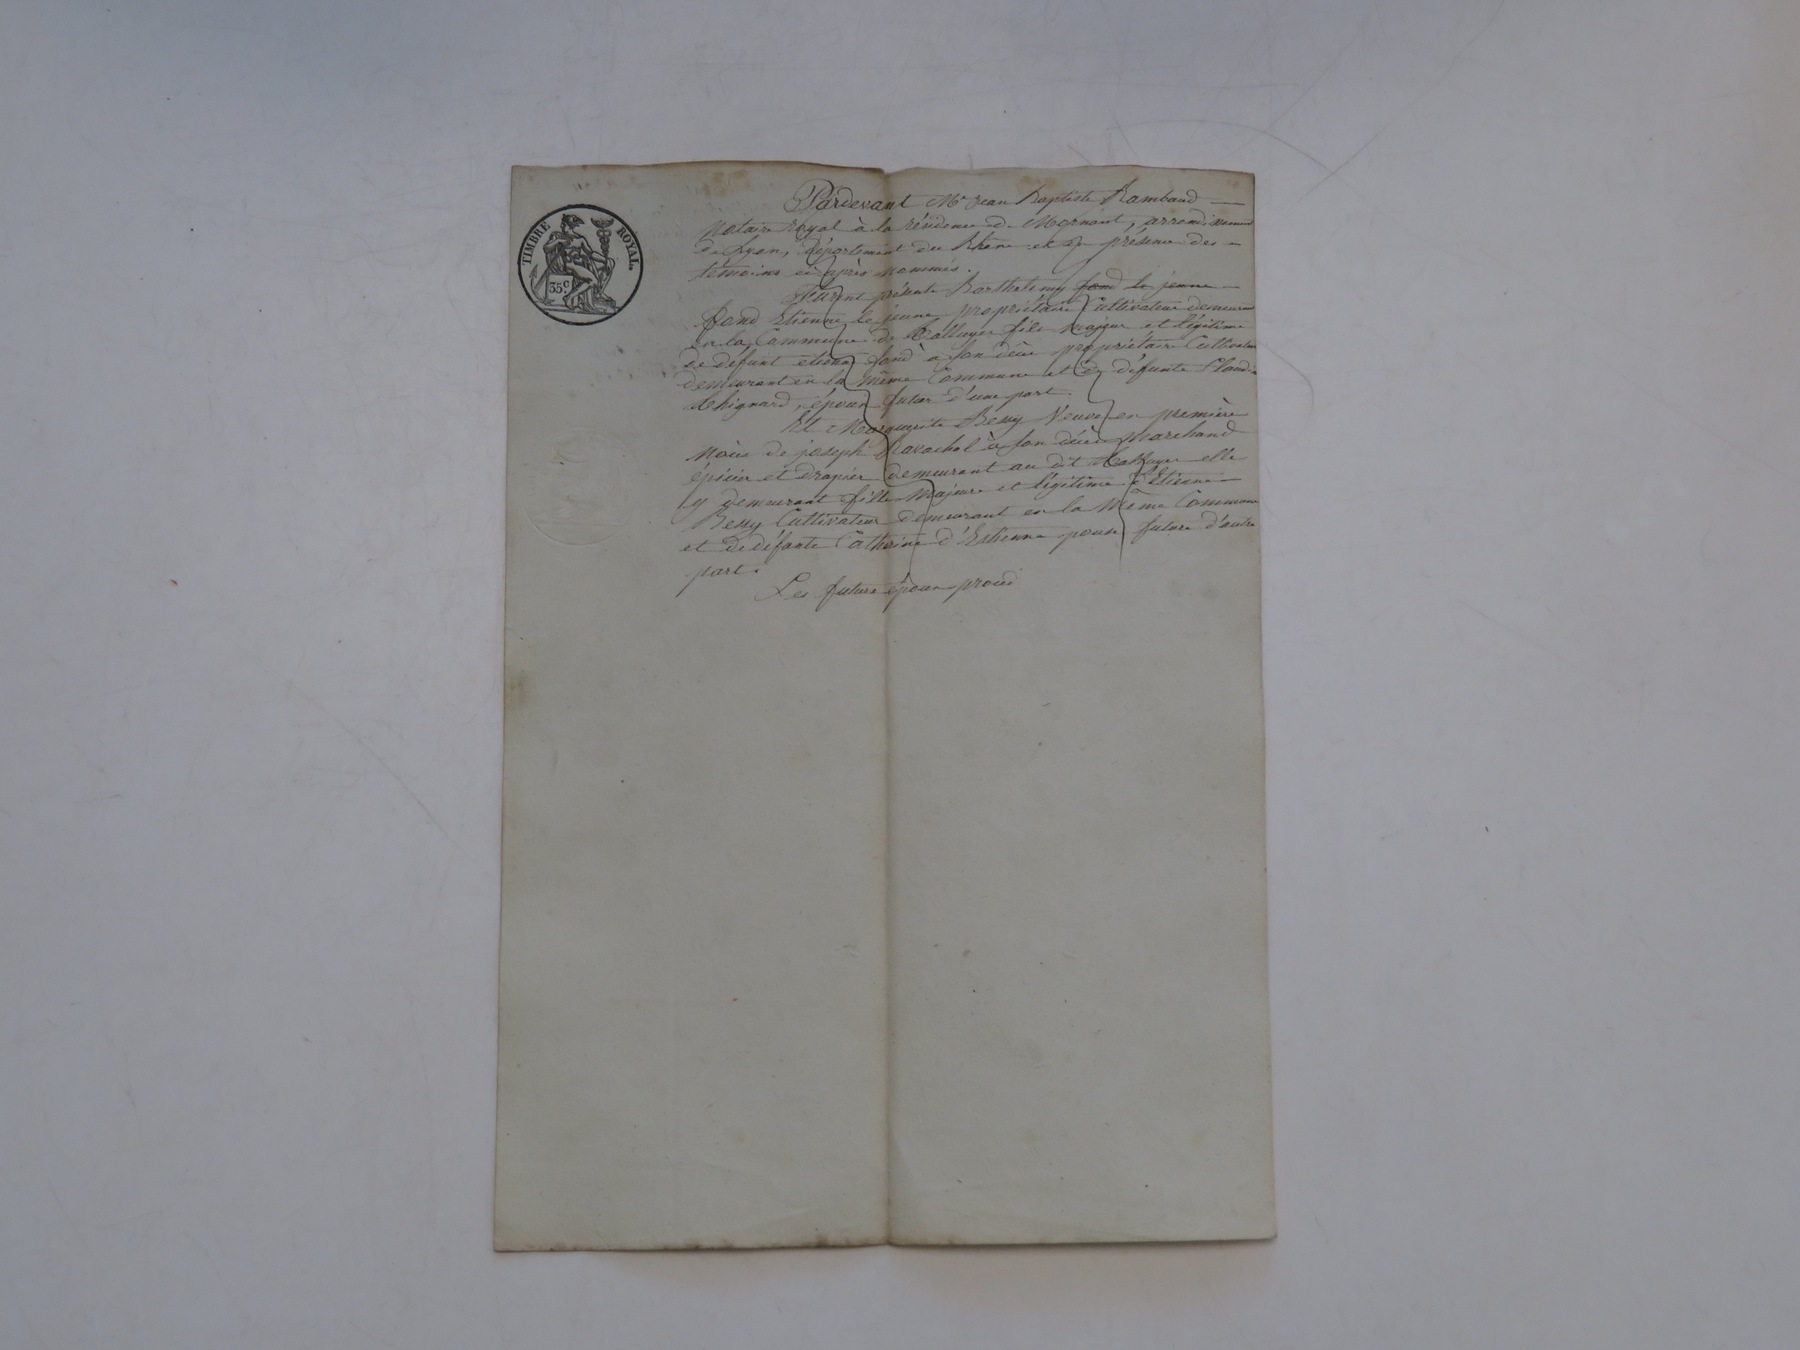 TIMBRE ROYAL.
35 C
Pardevant Me Jean Baptiste Rambaud —
Notaire royal à la résidence de Mornant, arrondissement
de Lyon, Département du Rhône et en présence des —
témoins ci après nommés.
Furent présents Barthelemy fond le jeune —
fond Etienne le jeune propriétaire Cultivateur demeurant
en la Commune de fils majeur et légitime
de défunt etienne fond à son décès propriétaire Cultivateur
demeurant en la même Commune et de défunte Claudine
époux futur d'une part.
Et Marguerite Bessy Veuve en première
Noce de joseph Ravachol à son décès Marchand
épicier et drapier demeurant au dit elle
y demeurant fille Majeure et légitime d'Etienne —
Bessy Cultivateur demeurant en la Même Commune
et de défunte Catherine d'Estienne pouse future d'autre
part.
Les futurs époux